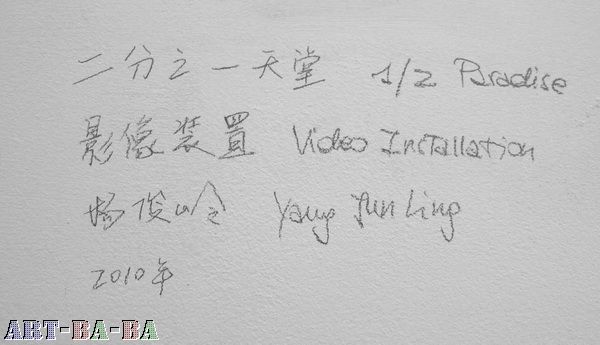 二分之一天堂 1/2 Paradise
影像装置 Video Installation
杨俊岭 Yang Jun Ling
2010年
ART-BA-BA